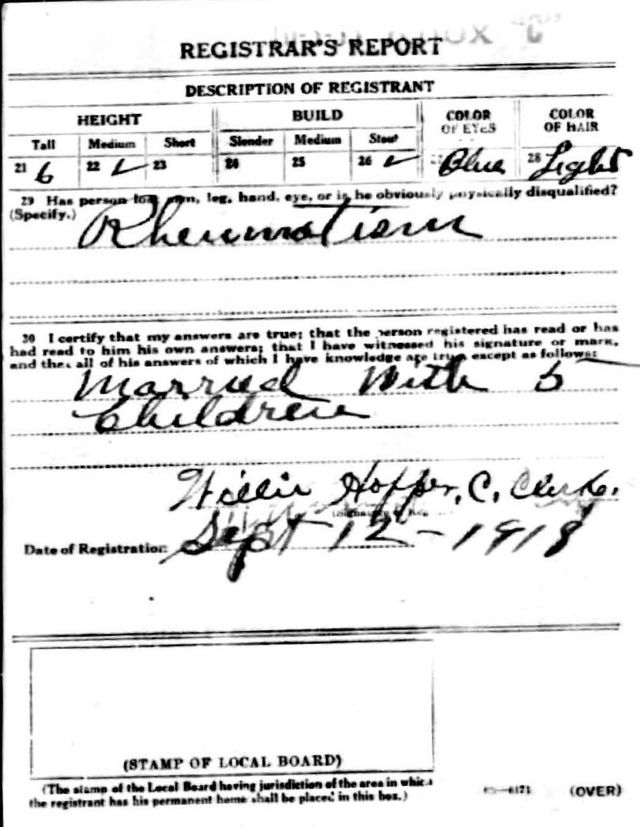 REGISTRAR'S REPORT
DESCRIPTION OF REGISTRANT
HEIGHT BUILD COLOR OF EYES COLOR OF HAIR
Tall Medium Short Slender Medium Stout
21 6 22 ✓ 23 24 25 26 ✓ Blue 28 Light
29 Has person lost arm, leg, hand, eye, or is he obviously physically disqualified?
(Specify.)
Rheumatism
30 I certify that my answers are true; that the person registered has read or has
had read to him his own answers; that I have witnessed his signature or mark,
and that all of his answers of which I have knowledge are true except as follows:
Married With 5
Children
Willie Hopper, C. Clerk.
Date of Registration Sept 12-1918
(STAMP OF LOCAL BOARD)
(The stamp of the Local Board having jurisdiction of the area in which
the registrant has his permanent home shall be placed in this box.)
(OVER)